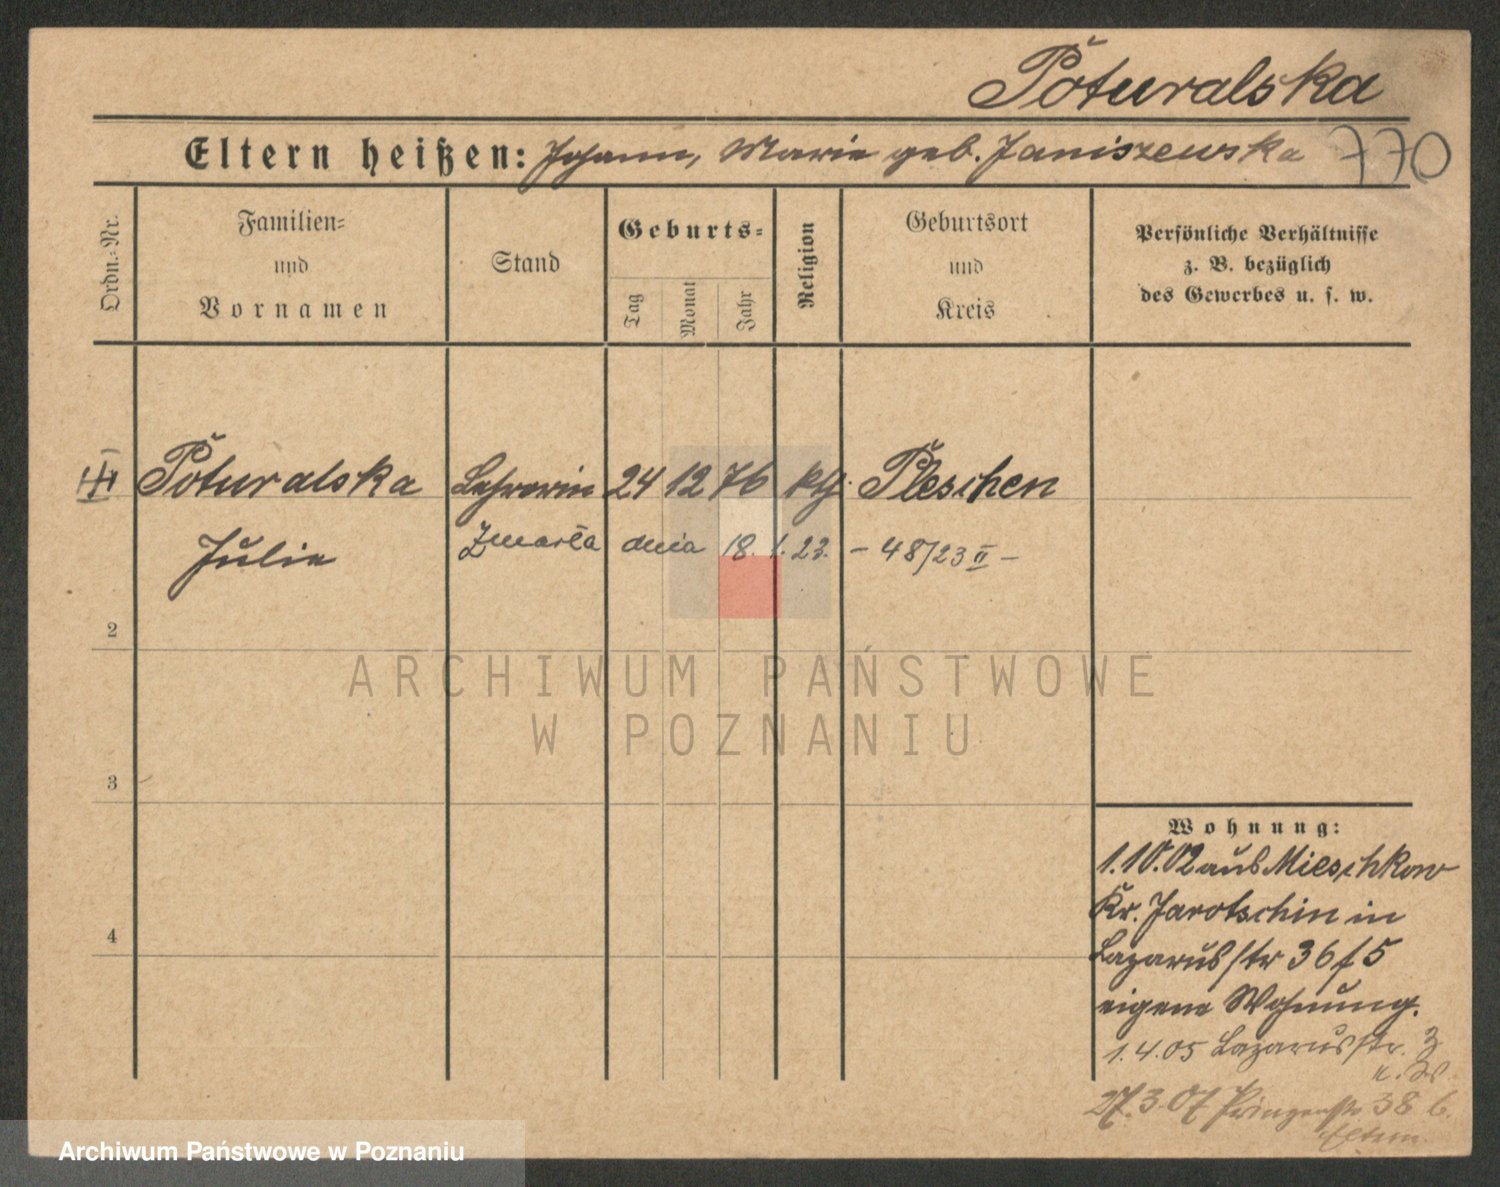 Poturalska
Eltern heißen: Johann, Marie geb. Janiszewska 770
Ordn.-Nr.
Familien-
und
Vornamen
Stand
Geburts-
Tag
Monat
Jahr
Religion
Geburtsort
und
Kreis
Persönliche Verhältnisse
z. B. bezüglich
des Gewerbes u. s. w.
Poturalska Lehrerin 24 12 76 kth. Pleschen
Julie Zmarła dnia 18. 1. 23. - 48/23 II -
2
ARCHIWUM PAŃSTWOWE
W POZNANIU
3
Wohnung:
1.10.02 aus Mieschkow
Kr. Jarotschin in
4
Lazarusstr 36 f 5
eigene Wohnung.
1.4.05 Lazarusstr. 3
27.3.07 Prinzenstr 38 b.
Eltern.
Archiwum Państwowe w Poznaniu